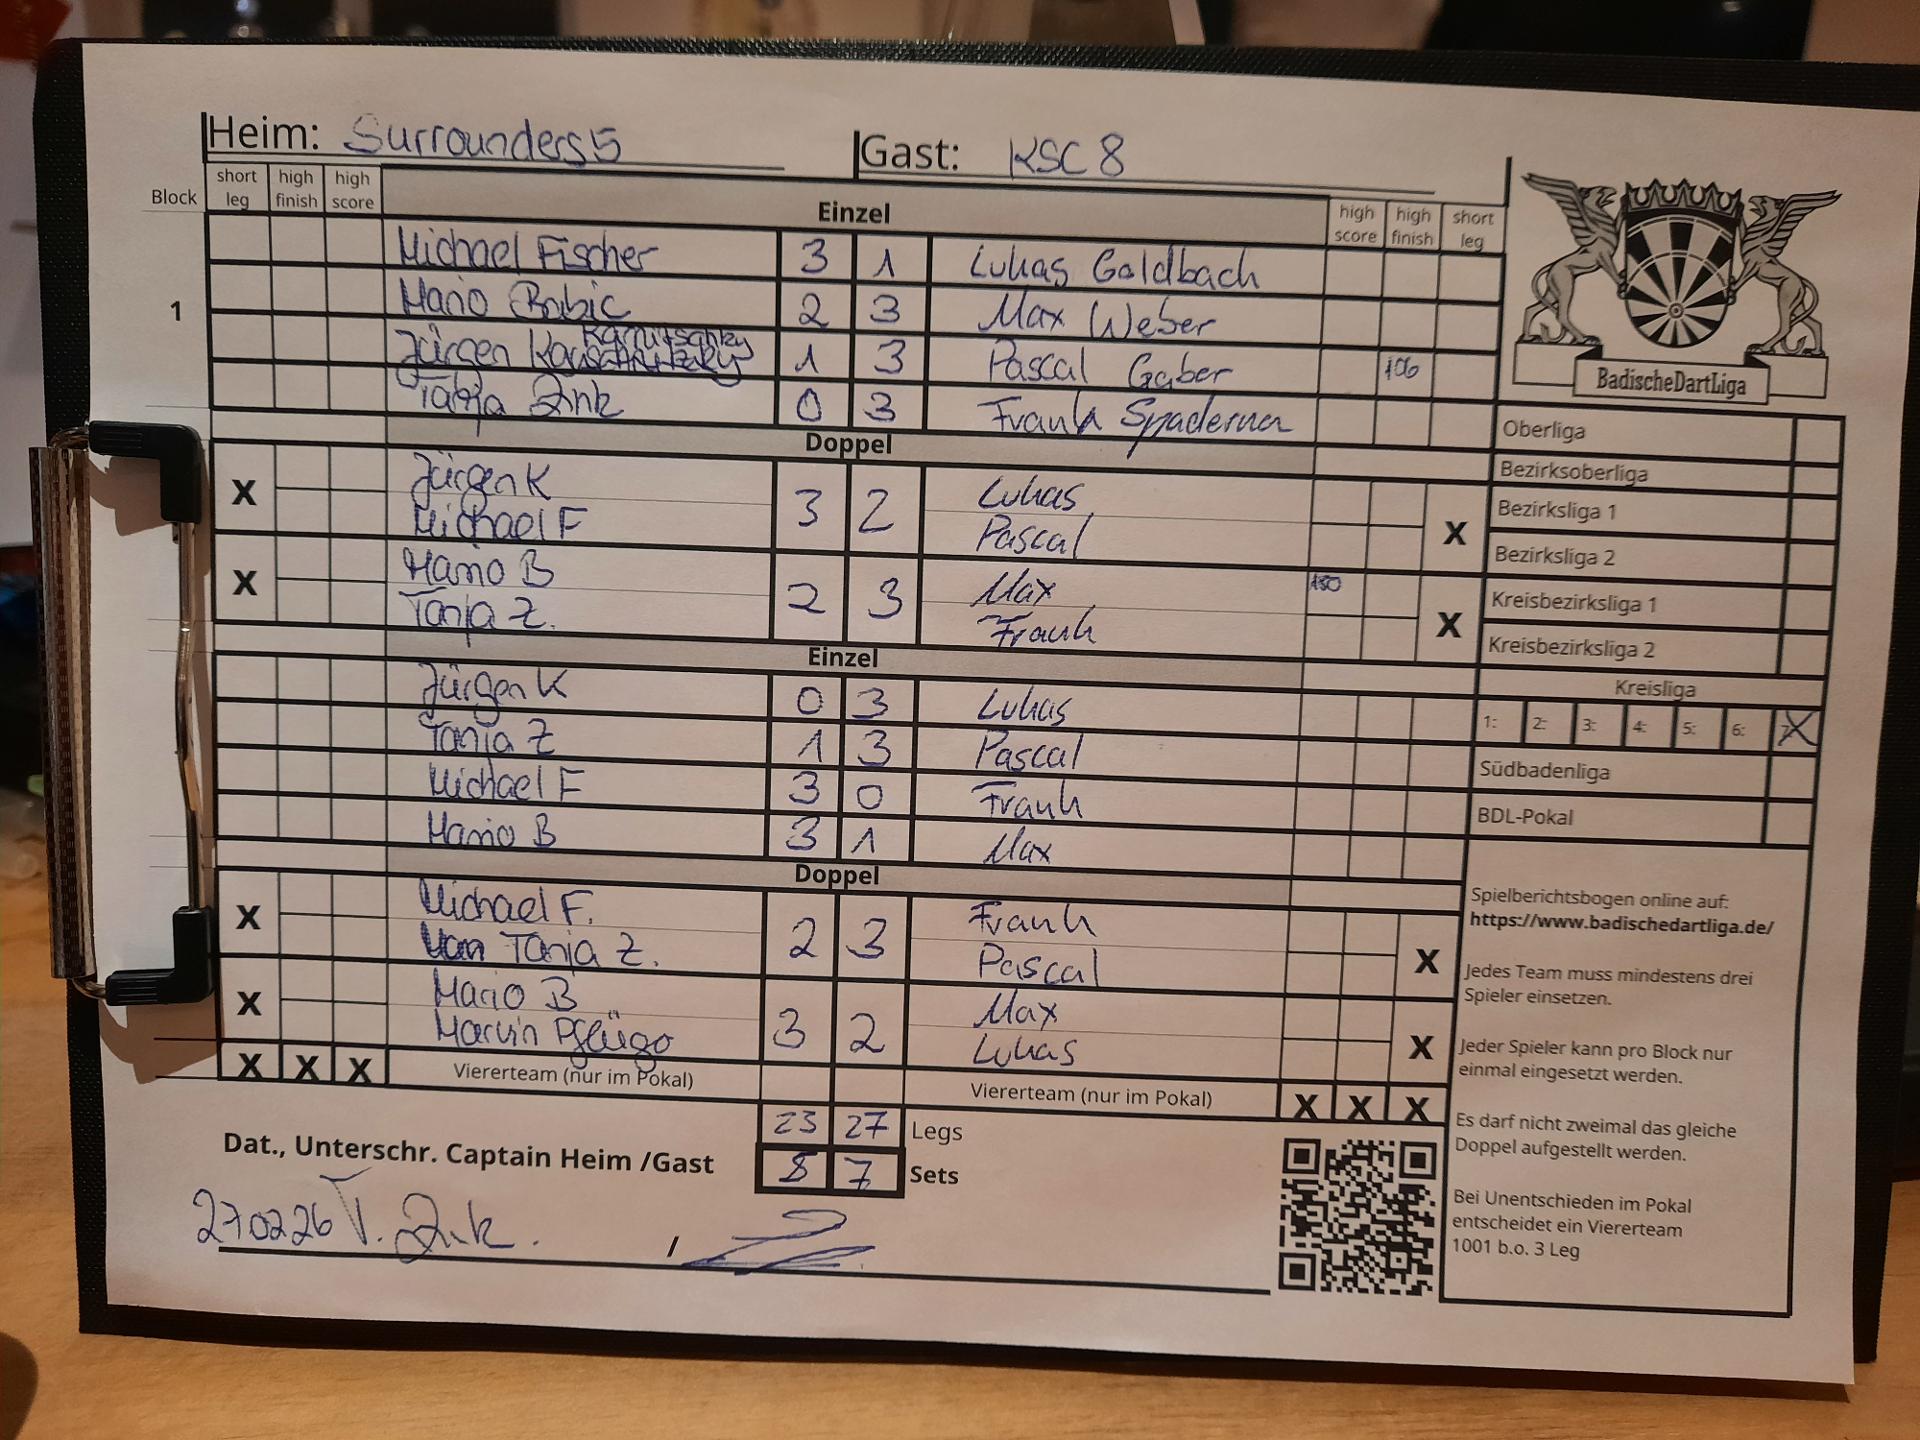 Heim: Surrounders 5 Gast: KSC 8
Block short leg high finish high score Einzel high score high finish short leg
Michael Fischer 3 1 Lukas Goldbach
1 Mario Babic 2 3 Max Weber
Jürgen Karnitschky 1 3 Pascal Gaber 106
Tanja Zink 0 3 Frank Spaderna
Doppel
X Jürgen K 3 2 Lukas X
Michael F Pascal
X Mario B 2 3 Max 180 X
Tanja Z. Frank
Einzel
Jürgen K 0 3 Lukas
Tanja Z 1 3 Pascal
Michael F 3 0 Frank
Mario B 3 1 Max
Doppel
X Michael F. 2 3 Frank X
Tanja Z. Pascal
X Mario B 3 2 Max X
Marvin Lukas
X X X Viererteam (nur im Pokal) Viererteam (nur im Pokal) X X X
23 27 Legs
7 Sets
Dat., Unterschr. Captain Heim /Gast
270226 T. Zink. /
BadischeDartLiga
Oberliga
Bezirksoberliga
Bezirksliga 1
Bezirksliga 2
Kreisbezirksliga 1
Kreisbezirksliga 2
Kreisliga
1: 2: 3: 4: 5: 6: X
Südbadenliga
BDL-Pokal
Spielberichtsbogen online auf:
https://www.badischedartliga.de/
Jedes Team muss mindestens drei
Spieler einsetzen.
Jeder Spieler kann pro Block nur
einmal eingesetzt werden.
Es darf nicht zweimal das gleiche
Doppel aufgestellt werden.
Bei Unentschieden im Pokal
entscheidet ein Viererteam
1001 b.o. 3 Leg